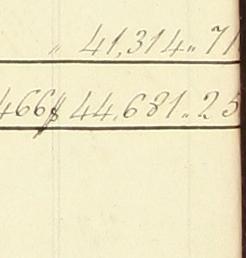 " 41,314" 71
466 $ 44,681" 25